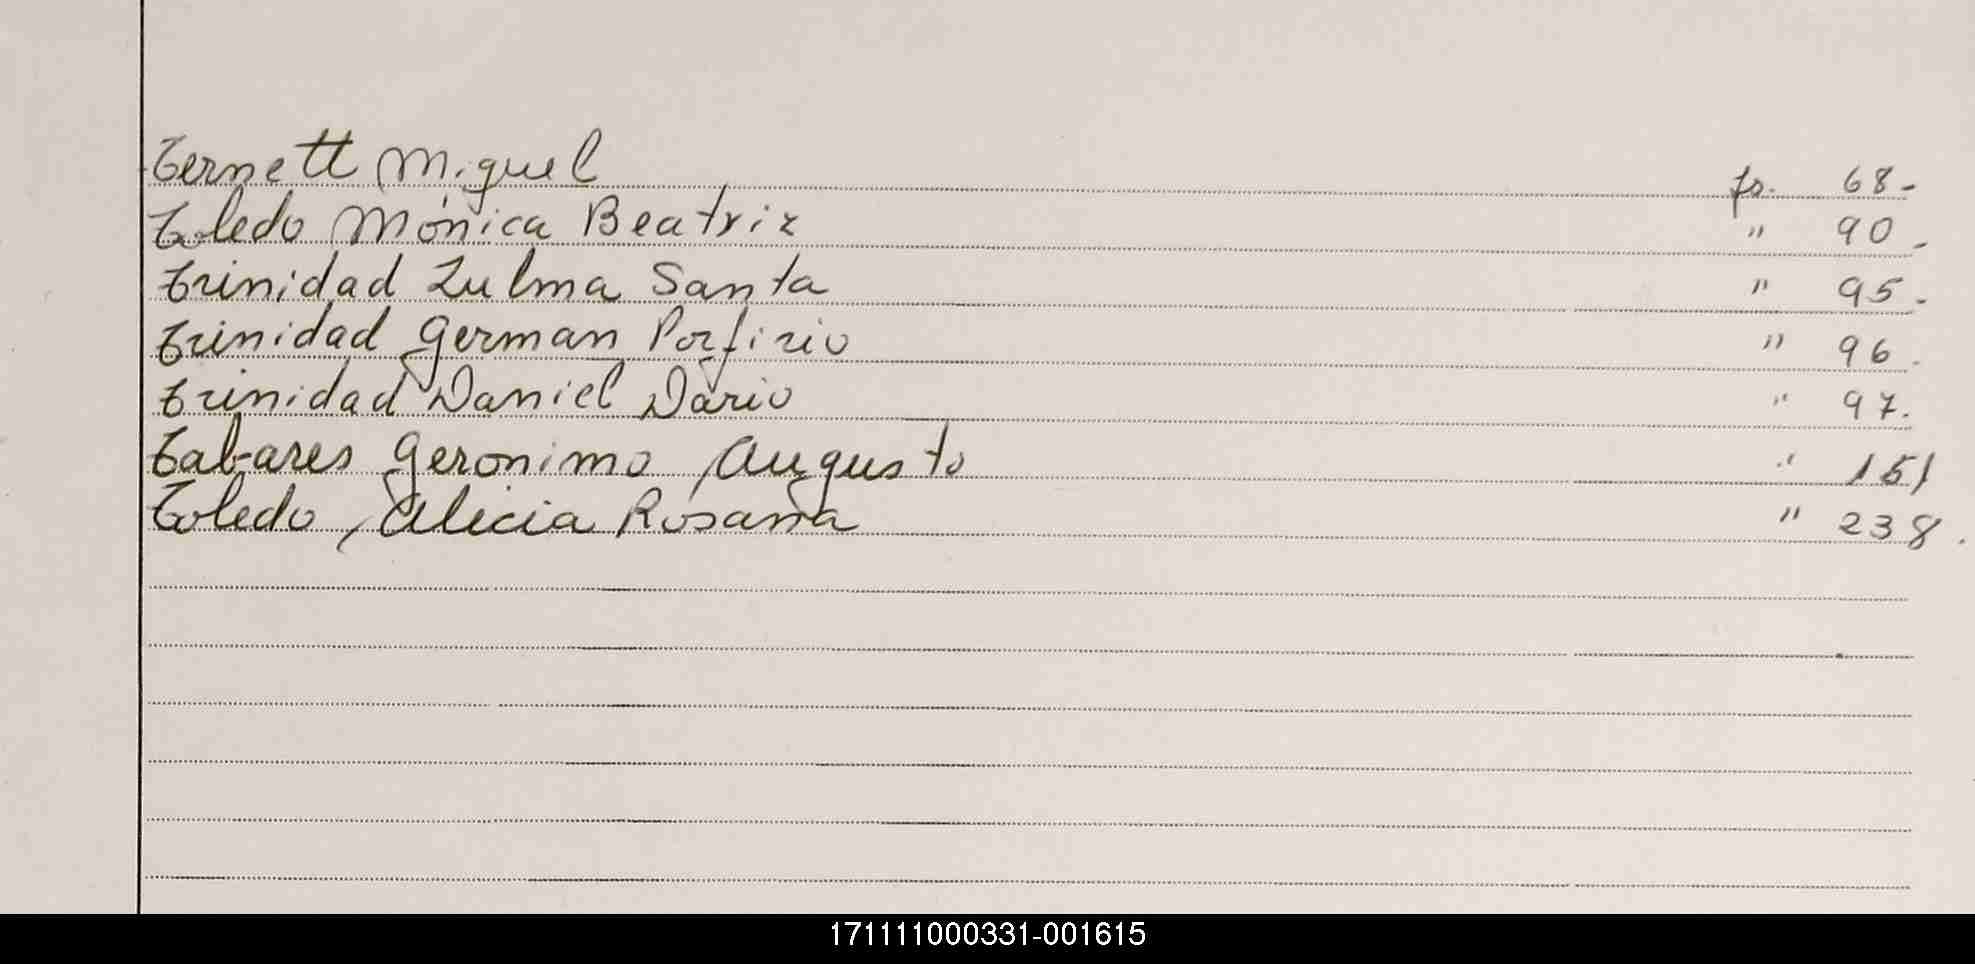 Ternett Miguel fo. 68-
Toledo Mónica Beatriz " 90.
Trinidad Zulma Santa " 95.
Trinidad German Porfirio " 96.
Trinidad Daniel Dario " 97.
Tabares Geronimo Augusto " 151
Toledo, Alicia Rosana " 238.
171111000331-001615